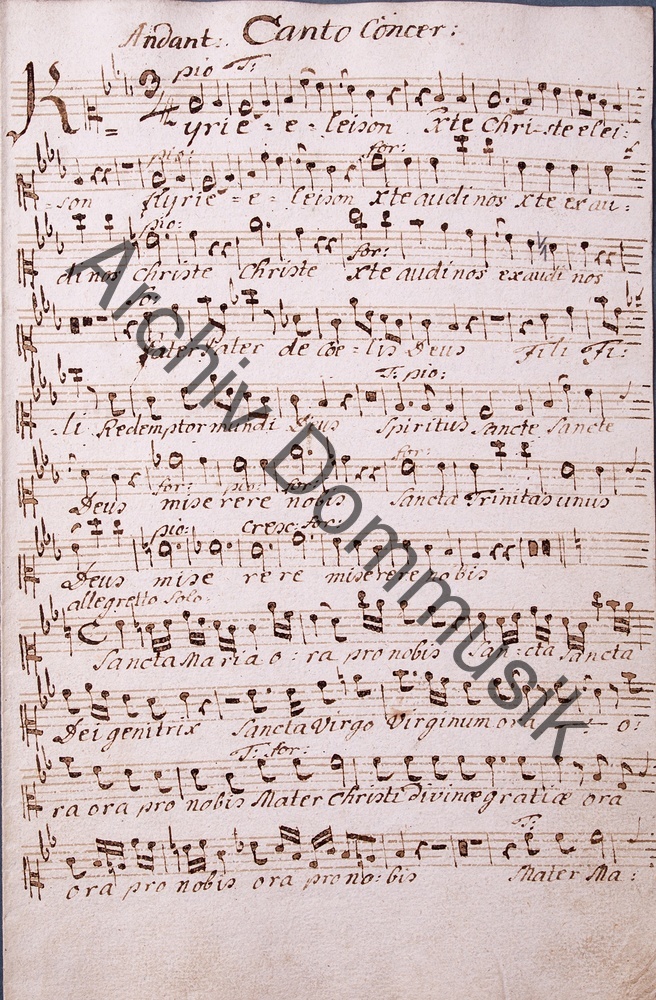 Andant: Canto Concer:
pio T:
Kyrie = e = leison Xte Christe elei:
pio: for:
son Kyrie = e = leison Xte audi nos Xte ex au:
pio: for:
di nos Christe Christe Xte audi nos exaudi nos
So:
Pater Pater de Coe = lis Deus Fili Fi:
T: pio:
li Redemptor mundi Deus Spiritus Sancte Sancte
for: pio: for: for:
Deus mise rere nobis Sancta Trinitas unus
pio: cresc: for:
Deus mise re re miserere nobis
allegretto Solo
Sancta Maria o : ra pro nobis San = cta Sancta
Dei genitrix Sancta Virgo Virginum ora o:
T: for:
ra ora pro nobis Mater Christi divinæ gratiæ ora
T:
ora pro nobis ora pro no: bis Mater Ma:
Archiv Dommusik